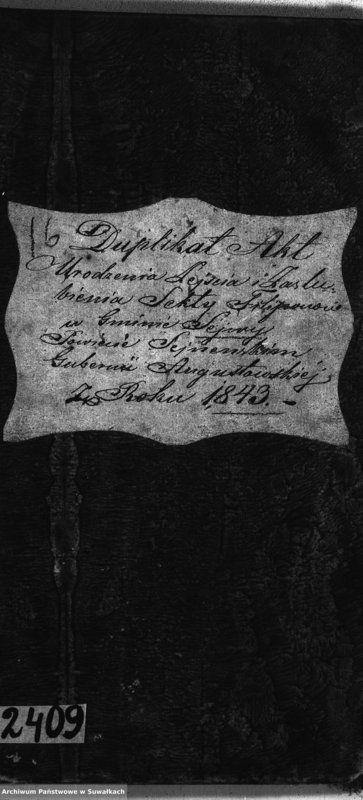 16 Duplikat Akt
Urodzenia Zejścia i Zaslu,
bienia Sekty Filiponów
w Gminie Sejny
Powiecie Sejneńskim
Gubernii Augustowskiéj
Z Roku 1843. –
2409
Archiwum Państwowe w Suwałkach